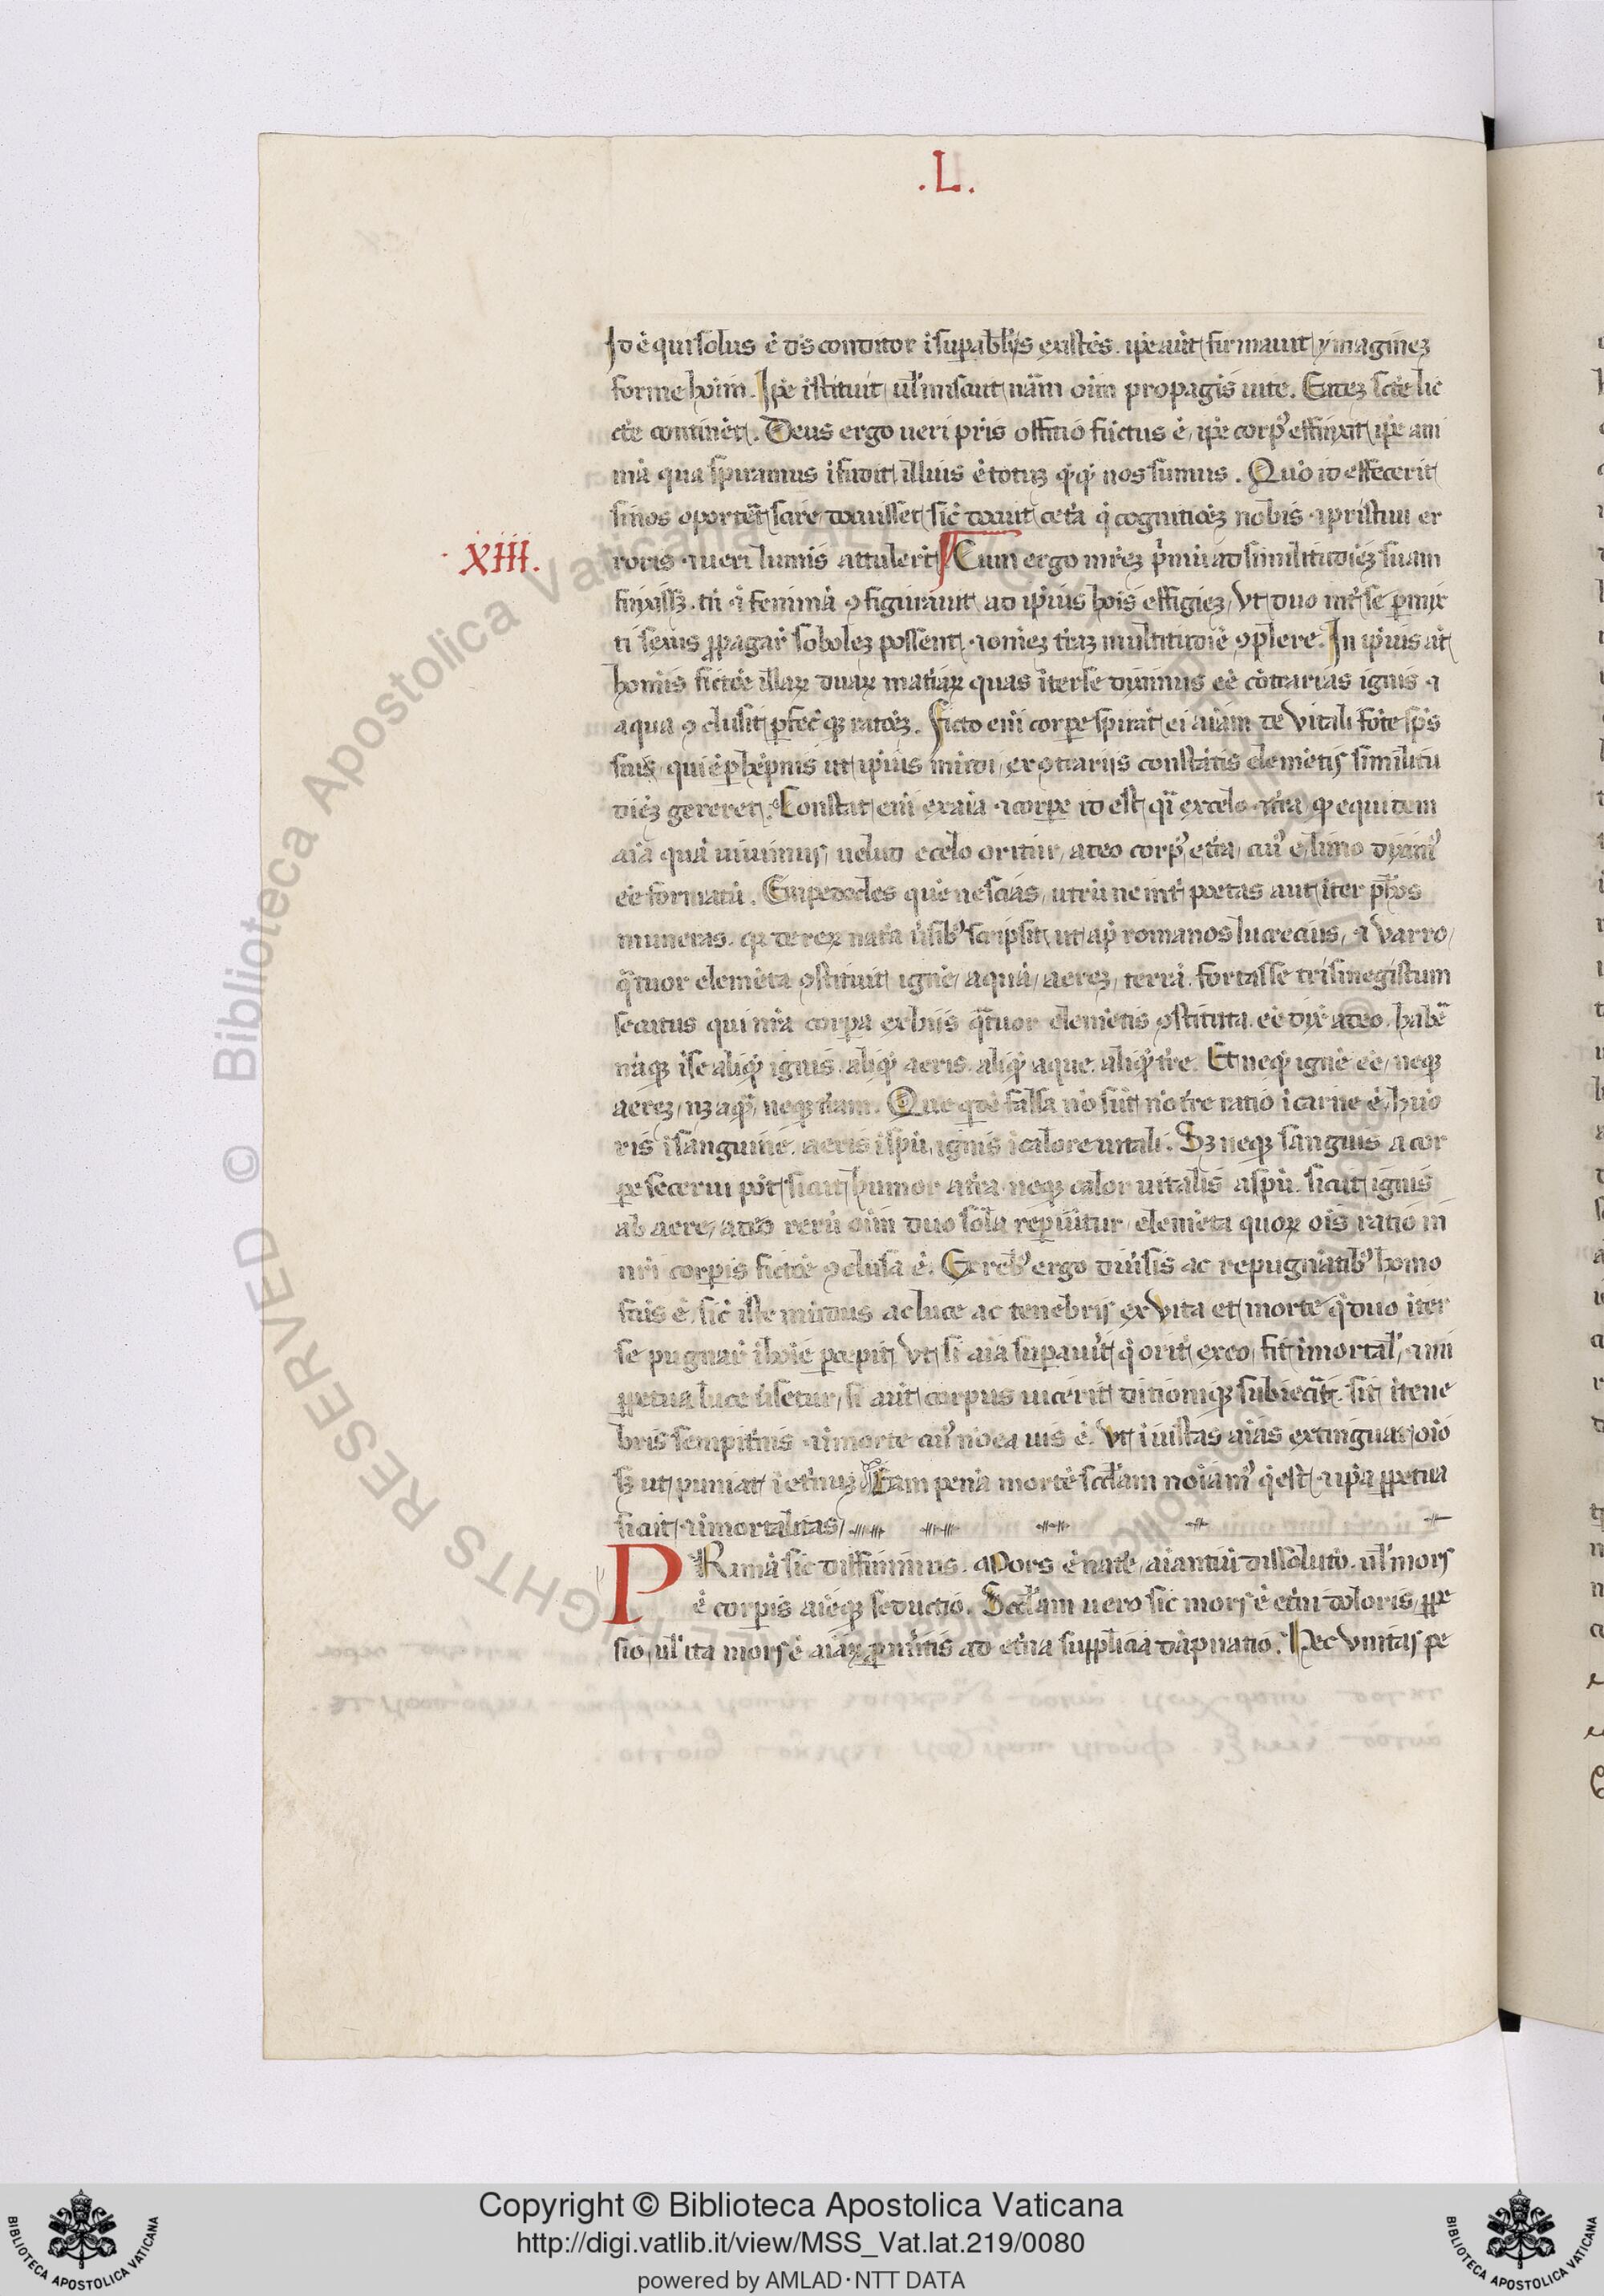 .L.
Id ē qui solus ē ds conditor isupablis existēs. ipe aūt firmauit ymaginez
forme hoīm. Ipe istituit ul misauit nām oīm propagīs uite.
cte continet. Deus ergo ueri pris offitio fūctus ē, ipe corpꝰ effinxit ipe ani
mā qua spiramus ifudit illius ē totuz qͥqͥ nos sumus. Quō id effecerit
si nos oporteret scire docuisset sic̄ docuit cetā q̄ cognitiōez nobis ⁊ pristini er
.XIII.
roris ⁊ ueri lumīs attulerit ¶ Cum ergo mrēz pͥmū ad similitudiēz suam
finxissz. tū ⁊ feminā ꝯfigurauit ad ipīus hoīs effigiez, Vt duo intͥ se pmix
ti sexus ꝓpagarͥ sobolez possent ⁊ omēz trāz multitudiē ꝯplere. In ipīus at
homīs fictōe illaꝝ duaꝝ matiāꝝ quas iterse diximus eē cōtrarias ignis ⁊
aqua ꝯclusit pfecitqꝫ ratōez. Ficto enī corpe spirāt ei aīam de Vitali fōte sps
sui, qui ē phēpnis ut ipīus mūdi, ex ꝯtrariis constātis elemētis similitu
diēz gereret. Constat enī ex aīa ⁊ corpe id est qͣi ex celo ⁊ trā qͫ equidem
aīa quā uiuimus uelud e celo oritur, a deo corpꝰ e trā, cuꝰ e limo diximꝰ
eē formatū. Empedocles quē nescias, utrū ne intͥ poetas aut iter phos
numeras. qͣ de reꝝ natā ūsibꝰ scripsit ut apͩ romanos lucrecius, ⁊ Varro,
qͣtuor elemēta ꝯstituit ignē, aquā, aerez, terrā. fortasse trismegistum
secutus qui nrā corpa ex hiis qͣtuor elemētis ꝯstituta eē dix̄ a deo. habē
nāqꝫ i se aliqͥ ignis. aliqͥ aeris. aliqͥ aque. aliqͥ tre. Et neqꝫ ignē eē, neqꝫ
aerez, nꝫ aqͣ, neqꝫ trām. Que qͥdē falsa nō sūt nā tre ratio i carne ē, huō
ris i sanguine. aeris i spū, ignis i calore uitali. Sꝫ neqꝫ sanguis a cor
pe secerni pōt sicut humor a trā. neqꝫ calor uitalis a spū. sicut ignis
ab aere, adeo rerū oīm duo sola repūitur elemēta quoꝝ oīs ratio in
nrī corpis fictōe ꝯclusa ē. Ex rebꝰ ergo diūsis ac repugnātibꝰ homo
fctūs ē, sic ipse mūdus ac luce ac tenebris ex Vita et morte q̄ duo iter
se pugnarͥ i hoīe pcepit, Vt si aīa supauit q̄ orit ex eo, fit imortal, ⁊ īni
ꝓpetua luce ūsetur, si aūt corpus uicerit ditioniqꝫ subiecerit. sit i tene
bris sempitnis ⁊ i morte cuꝰ nō ea uis ē. Vt iniustas aīas extinguat oīo
sꝫ ut puniat i etnuz. Eam penā mortē secdam noīamꝰ q̄ est ⁊ ipā ꝓpetua
sicut ⁊ imortalitas,
PRimā sic diffinimus. Mors ē nate, aīantiū dissoluto. ul mors
ē corpis aīeqꝫ seductio. Secdam uero sic mors ē etni doloris, ꝓpe
sio, ul ita mors ē aīaꝝ ꝓ mitis ad etna supplicia dāpnatio. Hec Vnitas pe
Copyright © Biblioteca Apostolica Vaticana
http://digi.vatlib.it/view/MSS_Vat.lat.219/0080
powered by AMLAD·NTT DATA
BIBLIOTECA APOSTOLICA VATICANA
BIBLIOTECA APOSTOLICA VATICANA